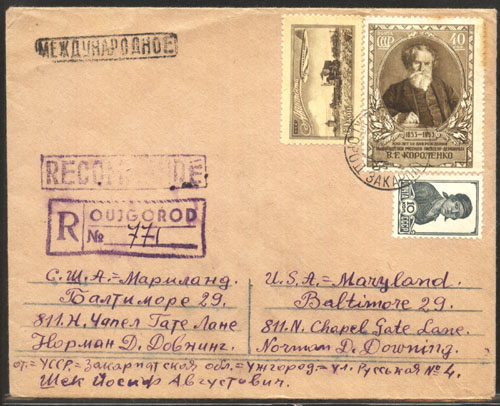 МЕЖДУНАРОДНОЕ
ПОЧТА СССР 40
1853–1953
В.Г. КОРОЛЕНКО
СССР
10
ЗАКАРП
RECOMMANDE
R OUJGOROD
№ 771
С.Ш.А.=Мариланд.
Балтиморе 29.
811.Н. Чапел Гате Лане
Норман Д. Довнинг.
U.S.A.=Maryland.
Baltimore 29.
811.N. Chapel Gate Lane.
Norman D. Downing.
от:=УССР.=Закарпатская обл.=Ужгород=ул. Русськая № 4.
Шек Иосиф Августович.